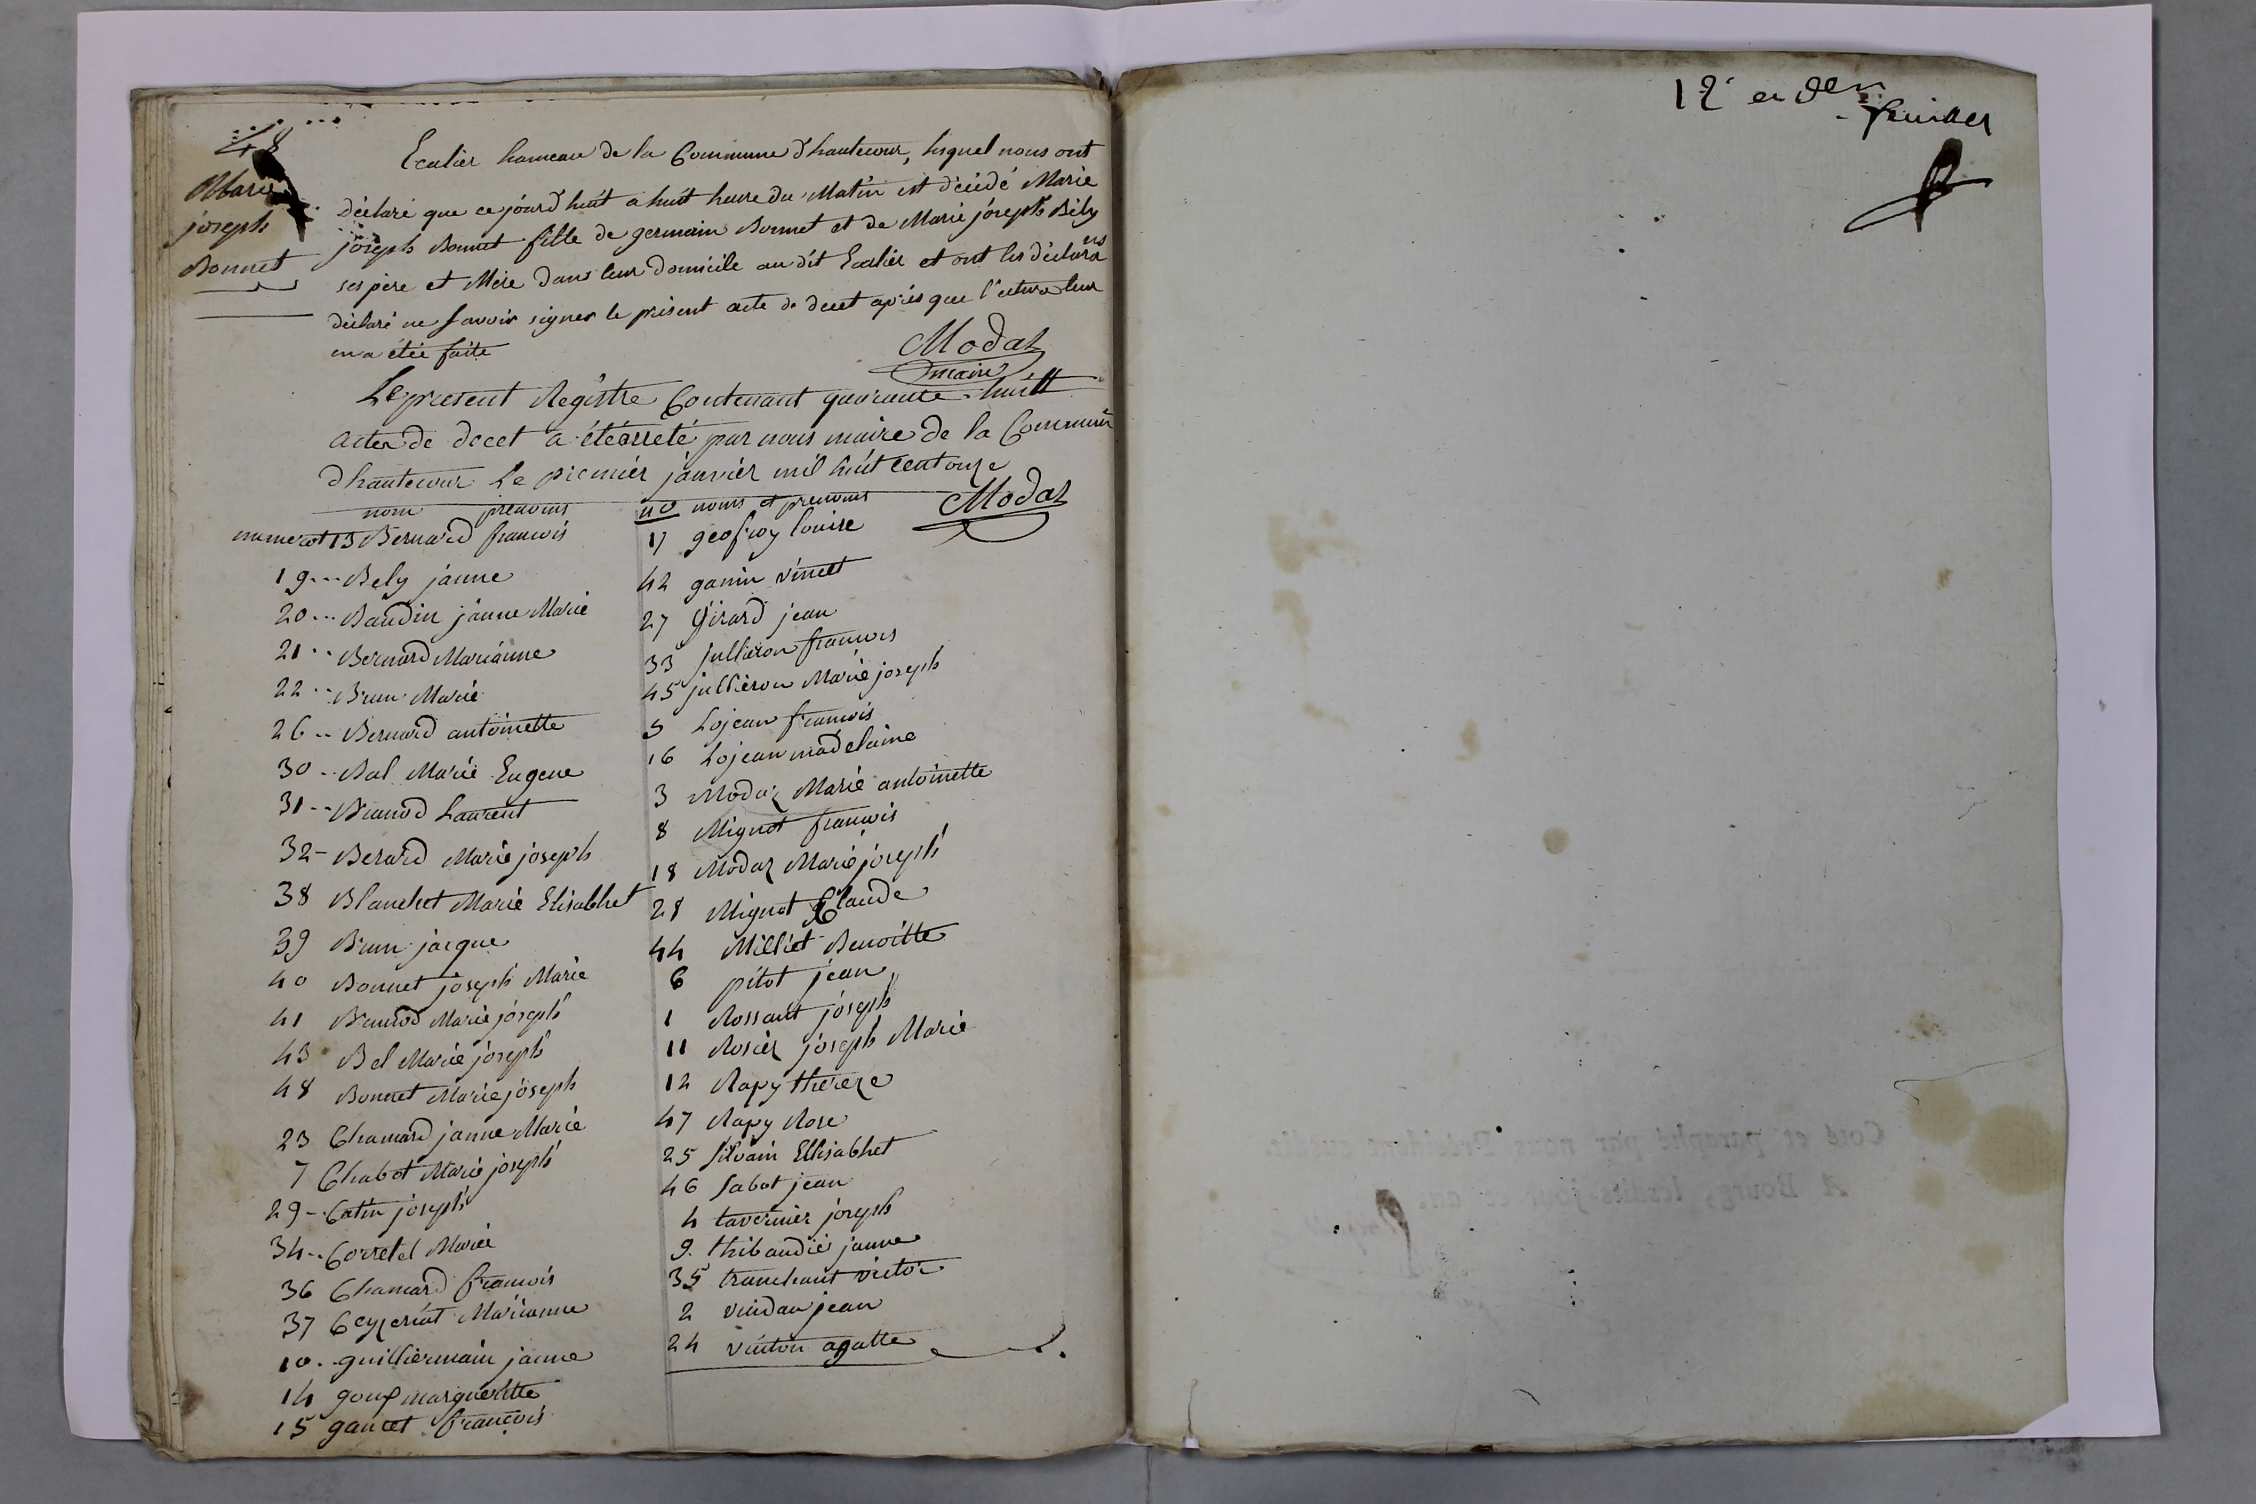 48
Marie
joseph
Bonnet
Ecalier hameau de la Commune d'hautecour, lesquel nous ont
déclaré que ce jourd huit a huit heure du Matin est décédé Marie
joseph Bonnet fille de germain Bonnet et de Marie joseph Bély
ses père et Mère dans leur domicile au dit Ecalier et ont les déclarants
déclaré ne savoir signer le présent acte de decet après que l'ecture leur
en a étée faite
Modaz
maire
Le present Registre Contenant quarante huitt
actes de decet a étéarreté par nous maire de la Commune
d'hautecour Le premier janvier mil huit cent onze
Modaz
nom prenoms
numerot 13 Bernard francois
19 Bely janne
20 Baudin janne Marie
21 Bernard Marianne
22 Brun Marie
26 Bernard antoinette
30 Bal Marie Eugene
31 Brunod Laurent
32 Berard Marie joseph
38 Blanchet Marie Elisabhet
39 Brun jacque
40 Bonnet joseph Marie
41 Brunod Marie joseph
43 Bel Marie joseph
48 Bonnet Marie joseph
23 Chanard janne Marie
7 Chabot Marie joseph
29 Catin joseph
34 Corretel Marie
36 Chanard francois
37 Ceyzeriat Marianne
10 guilliermain janne
14 margueritte
15 gancet françois
no noms et prenoms
17 geofroy louise
42 ganin vincet
27 Girard jean
33 jullieron francois
45 jullieron Marie joseph
5 Lojean francois
16 Lojean madelaine
3 Modaz Marie antoinette
8 Mignot francois
18 Modaz Marie joseph
28 Mignot Claude
44 Milliet Benoitte
6 pitot jean
1 Rossant joseph
11 Rosier joseph Marie
12 Rapy thereze
47 Rapy Rose
25 silvain Ellisabhet
46 sabot jean
4 tavernier joseph
9 thibaudié janne
35 tranchant victor
2 jean
24 agatte
12e et der
feuillet
Coté et paraphé par nous Président
A Bourg, lesdits jour et an.